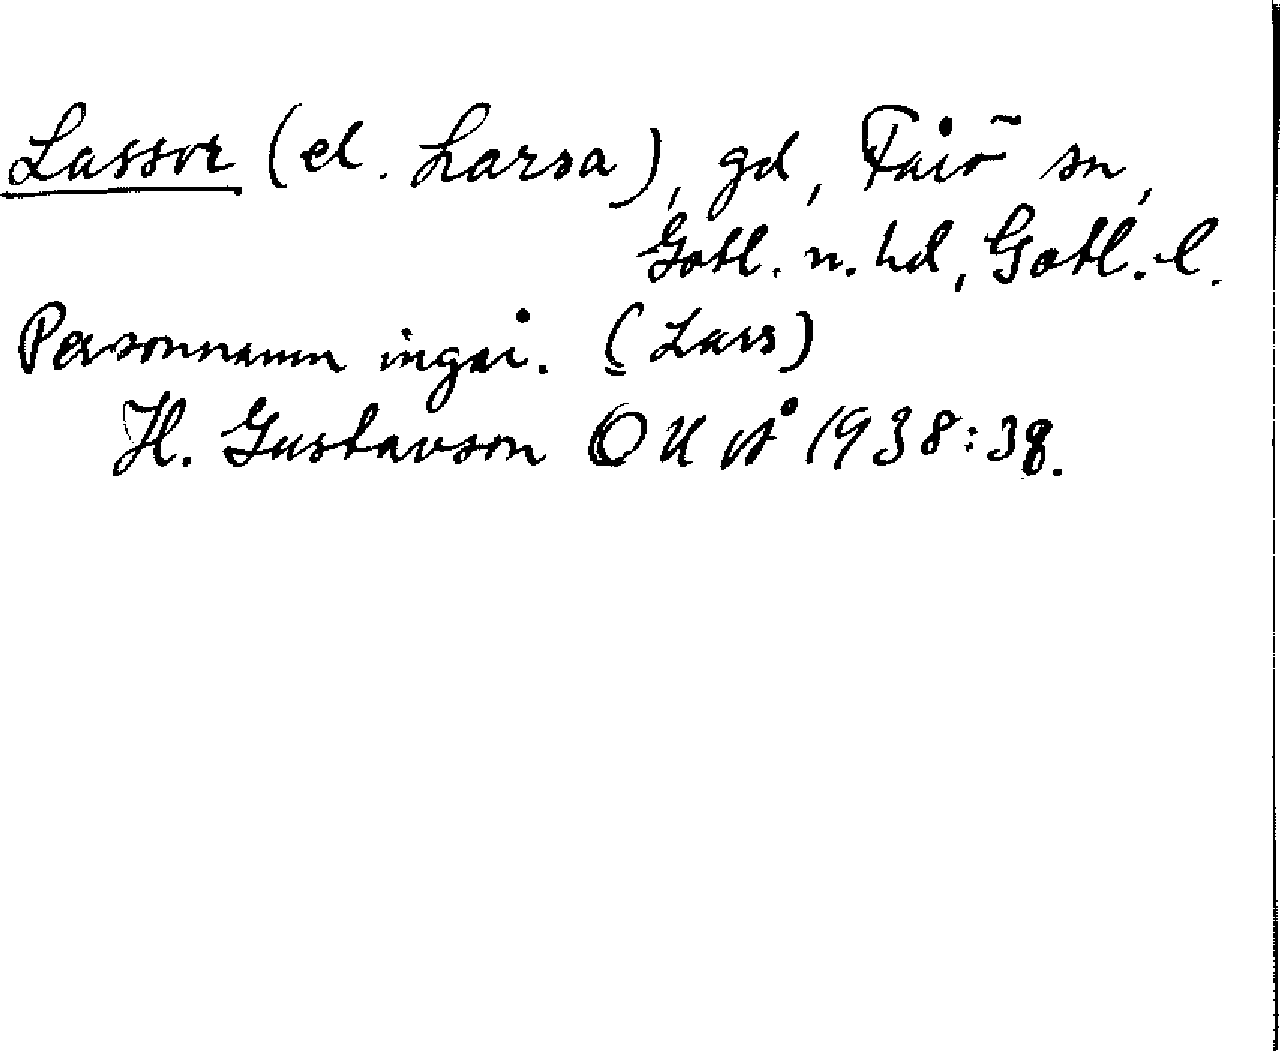 Lassor (el. Larsa), gd, Fårö sn,
Gotl. n. hd, Gotl. l.
Personnamn ingår. (Lars)
H. Gustavson OUÅ 1938:38.